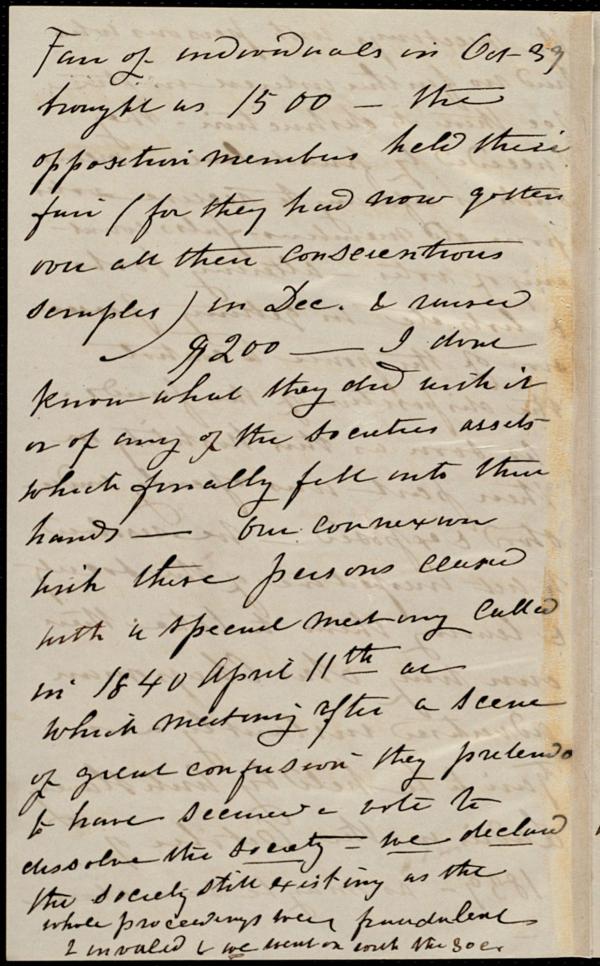 Fair of individuals in Oct 39
brought us 1500 — the
opposition members held their
fair (for they had now gotten
over all their conscientious
scruples) in Dec. & raised
$200 — I dont
know what they did with it
or of any of the societies assets
which finally fell into their
hands — Our connexion
with these persons ceased
with a special meeting called
in 1840 April 11th at
which meeting after a scene
of great confusion they pretend
to have secured a vote to
dissolve the society — we declared
the society still existing as the
whole proceedings were fraudulent
& invalid & we went on with the soc.